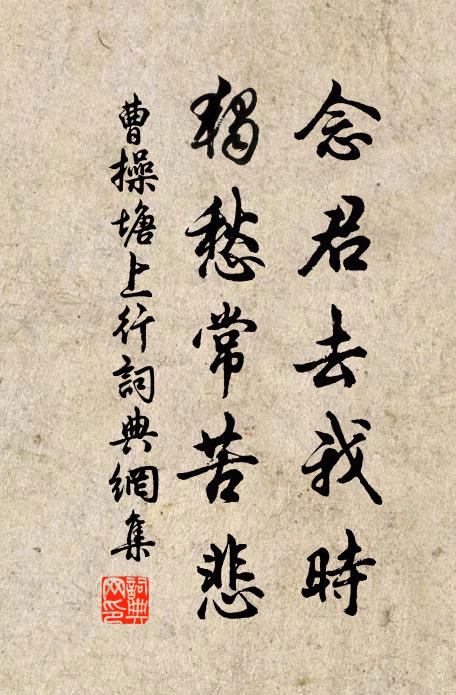 念君去我時
獨愁常苦悲
曹操塘上行詞典網集
詞典網印